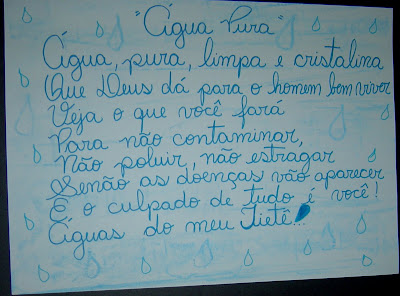 "Água Pura"
Água, pura, limpa e cristalina
Que Deus dá para o homem bem viver
Veja o que você fará
Para não contaminar,
Não poluir, não estragar
Senão as doenças vão aparecer
E o culpado de tudo é você!
Águas do meu Tietê...